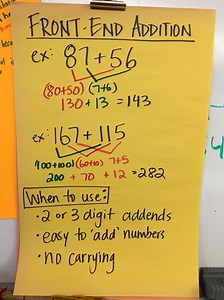 FRONT-END ADDITION
ex: 87+56
(80+50) (7+6)
130 + 13 = 143
ex: 167+115
(100+100) (60+10) 7+5
200 + 70 + 12 = 282
When to use:
• 2 or 3 digit addends
• easy to "add" numbers
• no carrying